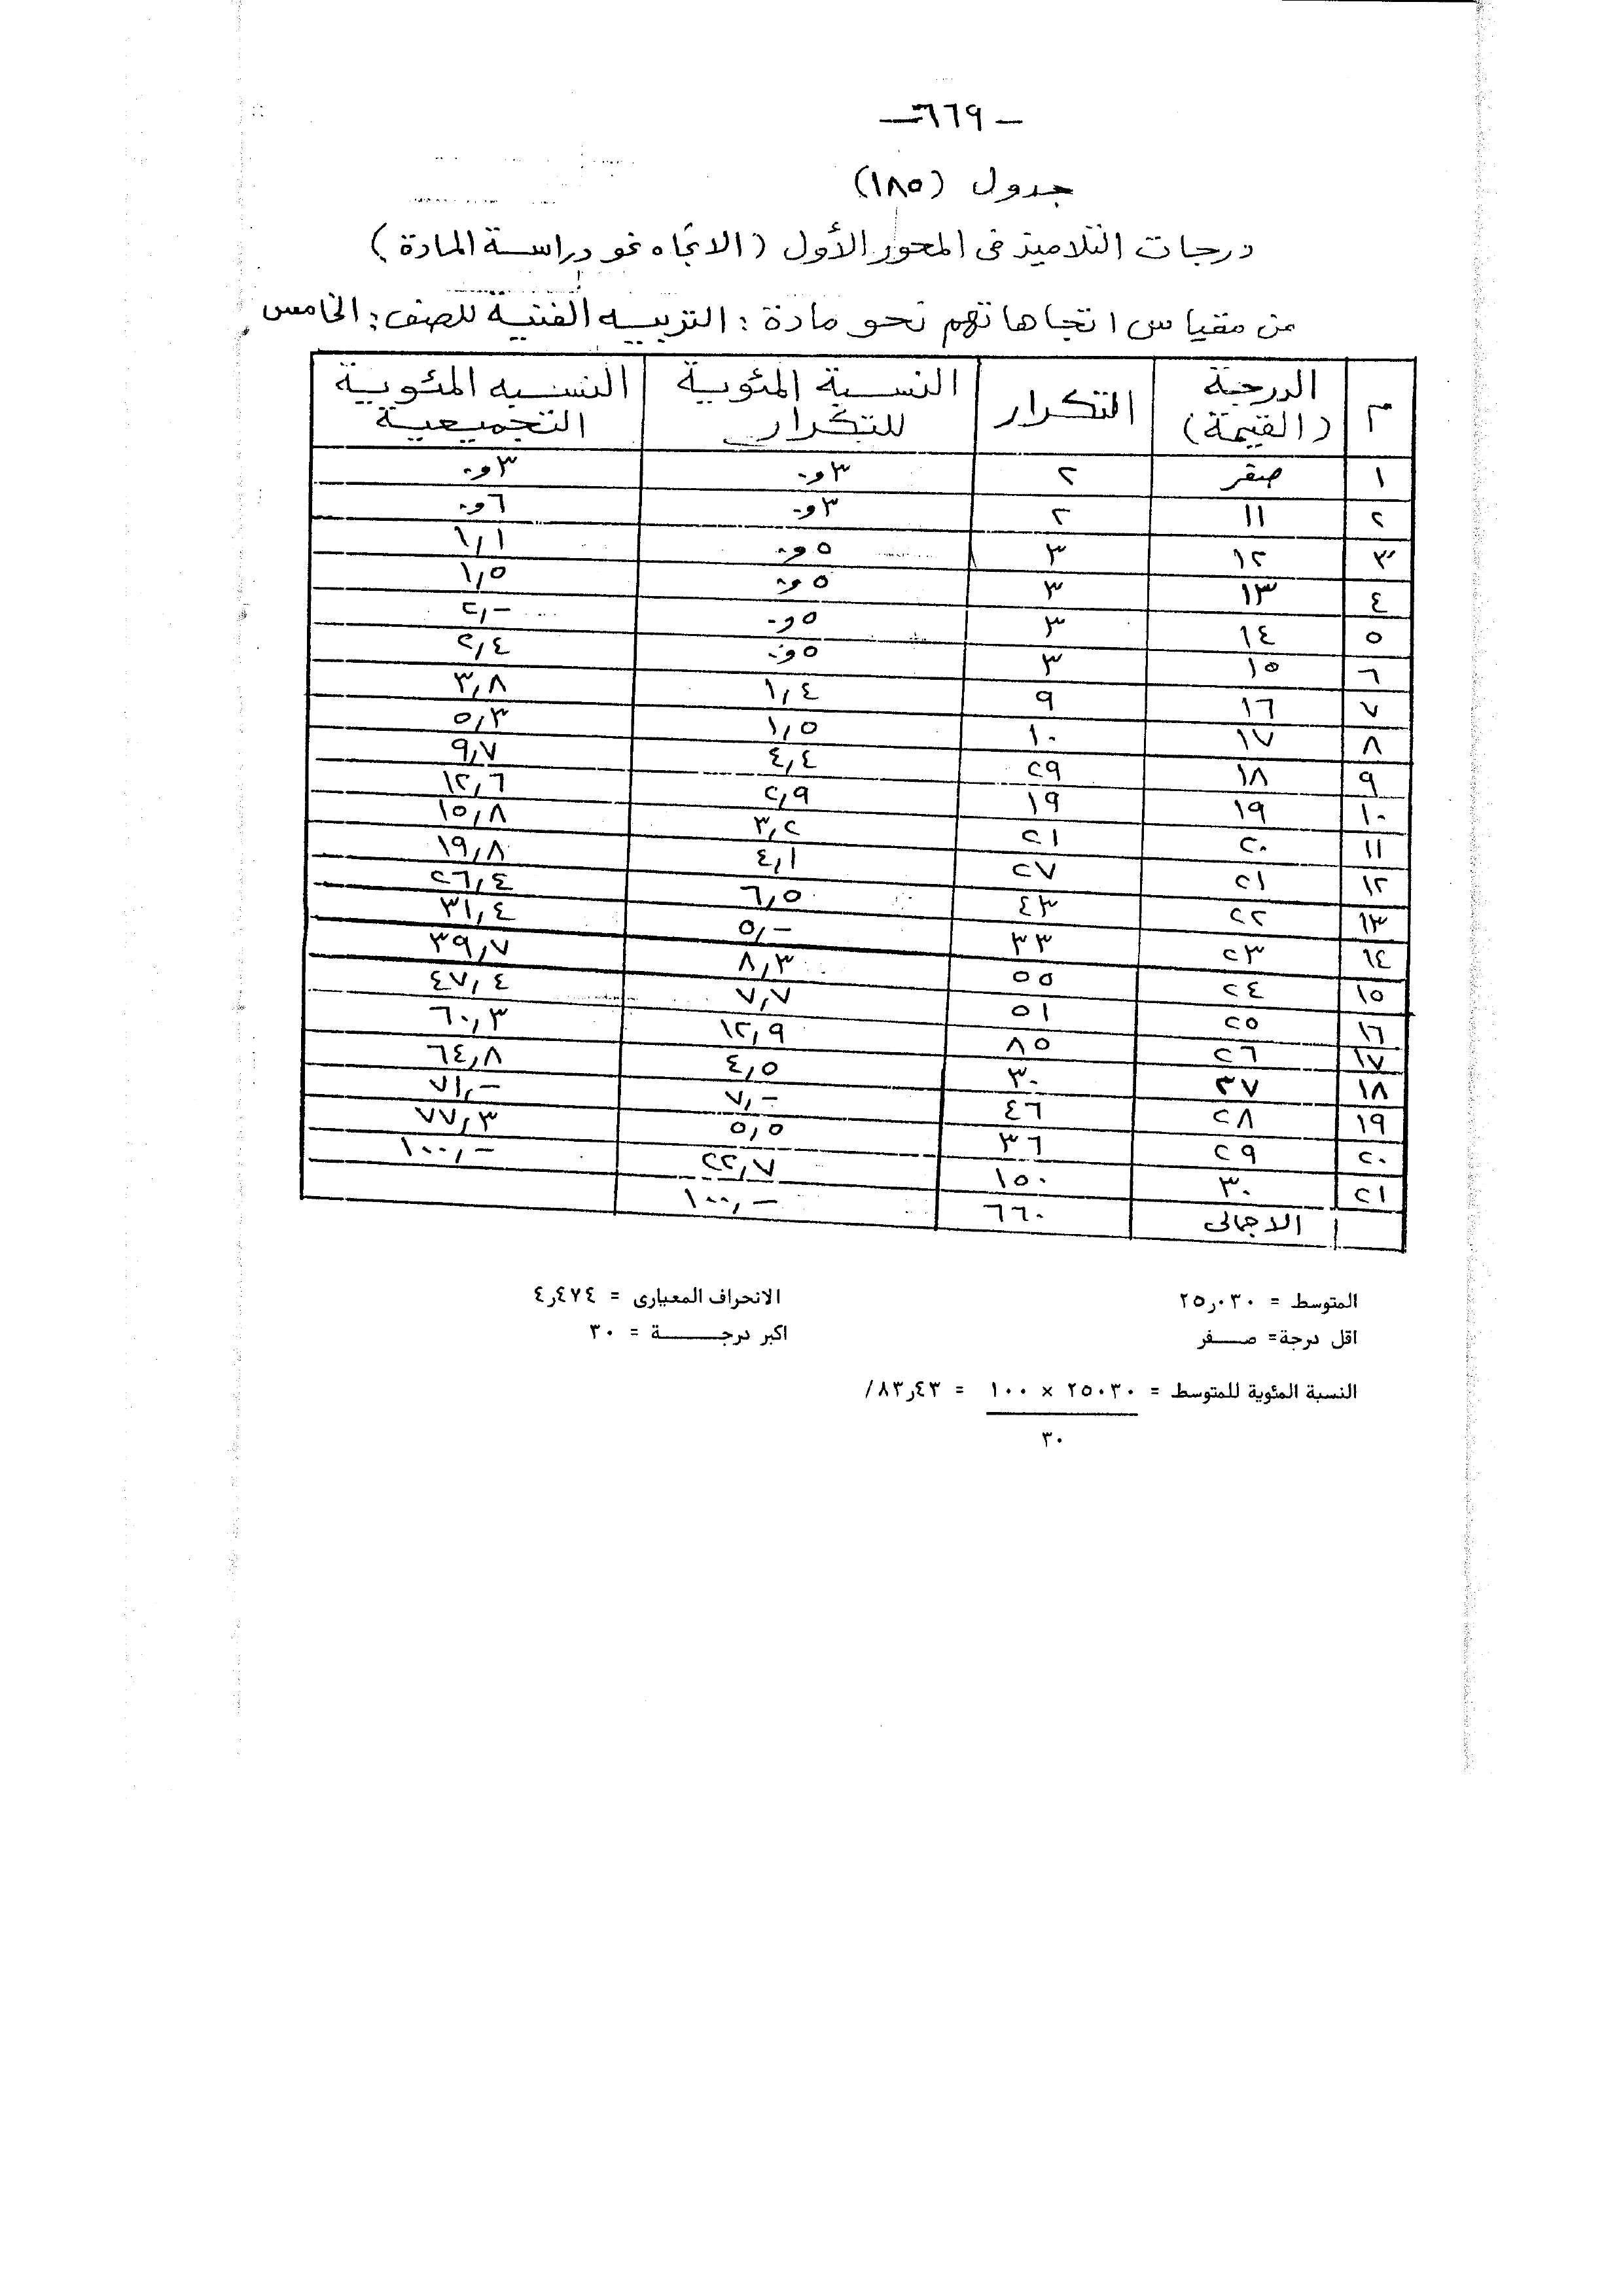 - ٦٦٩ -
جدول (١٨٥)
درجات التلاميذ فى المحور الأول (الاتجاه نحو دراسة المادة)
من مقياس اتجاهاتهم نحو مادة : التربيه الفنية للصف : الخامس
م الدرجة (القيمة) التكرار النسبة المئوية للتكرار النسبه المئوية التجميعية
١ صفر ٢ ٣و٠ ٣و٠
٢ ١١ ٢ ٣و٠ ٦و٠
٣ ١٢ ٣ ٥و٠ ١,١
٤ ١٣ ٣ ٥و٠ ١,٥
٥ ١٤ ٣ ٥و٠ ٢,-
٦ ١٥ ٣ ٥و٠ ٢,٤
٧ ١٦ ٩ ١,٤ ٣,٨
٨ ١٧ ١٠ ١,٥ ٥,٣
٩ ١٨ ٢٩ ٤,٤ ٩,٧
١٠ ١٩ ١٩ ٢,٩ ١٢,٦
١١ ٢٠ ٢١ ٣,٢ ١٥,٨
١٢ ٢١ ٢٧ ٤,١ ١٩,٨
١٣ ٢٢ ٤٣ ٦,٥ ٢٦,٤
١٤ ٢٣ ٣٣ ٥,- ٣١,٤
١٥ ٢٤ ٥٥ ٨,٣ ٣٩,٧
١٦ ٢٥ ٥١ ٧,٧ ٤٧,٤
١٧ ٢٦ ٨٥ ١٢,٩ ٦٠,٣
١٨ ٢٧ ٣٠ ٤,٥ ٦٤,٨
١٩ ٢٨ ٤٦ ٧,- ٧١,-
٢٠ ٢٩ ٣٦ ٥,٥ ٧٧,٣
٢١ ٣٠ ١٥٠ ٢٢,٧ ١٠٠,-
الاجمالى ٦٦٠ ١٠٠,-
المتوسط = ٠٣٠ر٢٥ الانحراف المعيارى = ٤٧٤ر٤
اقل درجة= صفر اكبر درجة = ٣٠
النسبة المئوية للمتوسط = ٢٥٠٣٠ × ١٠٠ = ٤٣ر٨٣٪
٣٠